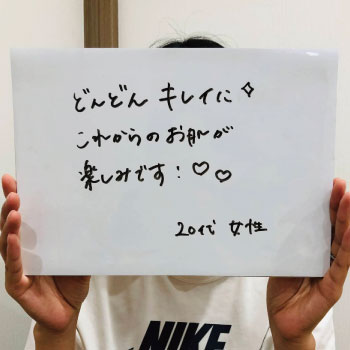 どんどん キレイに✧
これからのお肌が
楽しみです！♡♡
20代 女性
NIKE